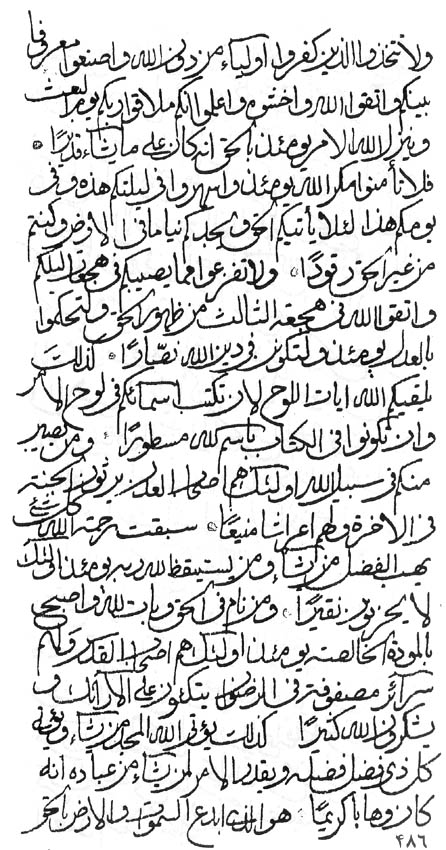 ولا تتخذوا الذين كفروا اولياء من دون الله واصنعوا معروفا
بينكم واتقوا الله واخشوه واعلموا انكم ملاقوا ربكم يوم البعث
وينزل الله الامر يومئذ بالحق انه كان على ما يشاء قديرا
فلا تأمنوا مكر الله يومئذ واسهروا في ليلتكم هذه وفي
يومكم هذا لئلا يأتيكم الحق ويجدكم نياما في الارض وكنتم
من غير الحق رقودا ولا تفزعوا مما يصيبكم في هجعة ليلكم
واتقوا الله في هجعته الثالث من ظهور الحق ولتحكموا
بالعدل يومئذ ولتكونن في دين الله نصارا كذلك
يلقيكم الله ايات اللوح لان تكتب اسمائكم في لوح الامر
وان تكونوا في الكتاب باسم الله مسطورا ومن يصير
منكم في سبيل الله اولئك هم اصحاب العدل يرثون الجنة
في الاخرة ولهم اعراشا منيعا سبقت رحمة الله كل شيء
يهب الفضل من يشاء ومن يستيقظ لله ربه يومئذ اولئك
لا يحزنون نقيرا ومن نام في الحق وبات لله واصبح
بالمودة الخالصة يومئذ اولئك هم اصحاب القدر ولهم
سرائر مصفوفة في الرضوان يتكئون على الارائك و
يشكرون الله كثيرا كذلك يؤتي الله المجد من يشاء ويؤتي
كل ذي فضل فضله ويقدر الامر لمن يشاء من عباده انه
كان وهابا كريما هو الذي ابدع السموات والارض بالحق
٤٨٦